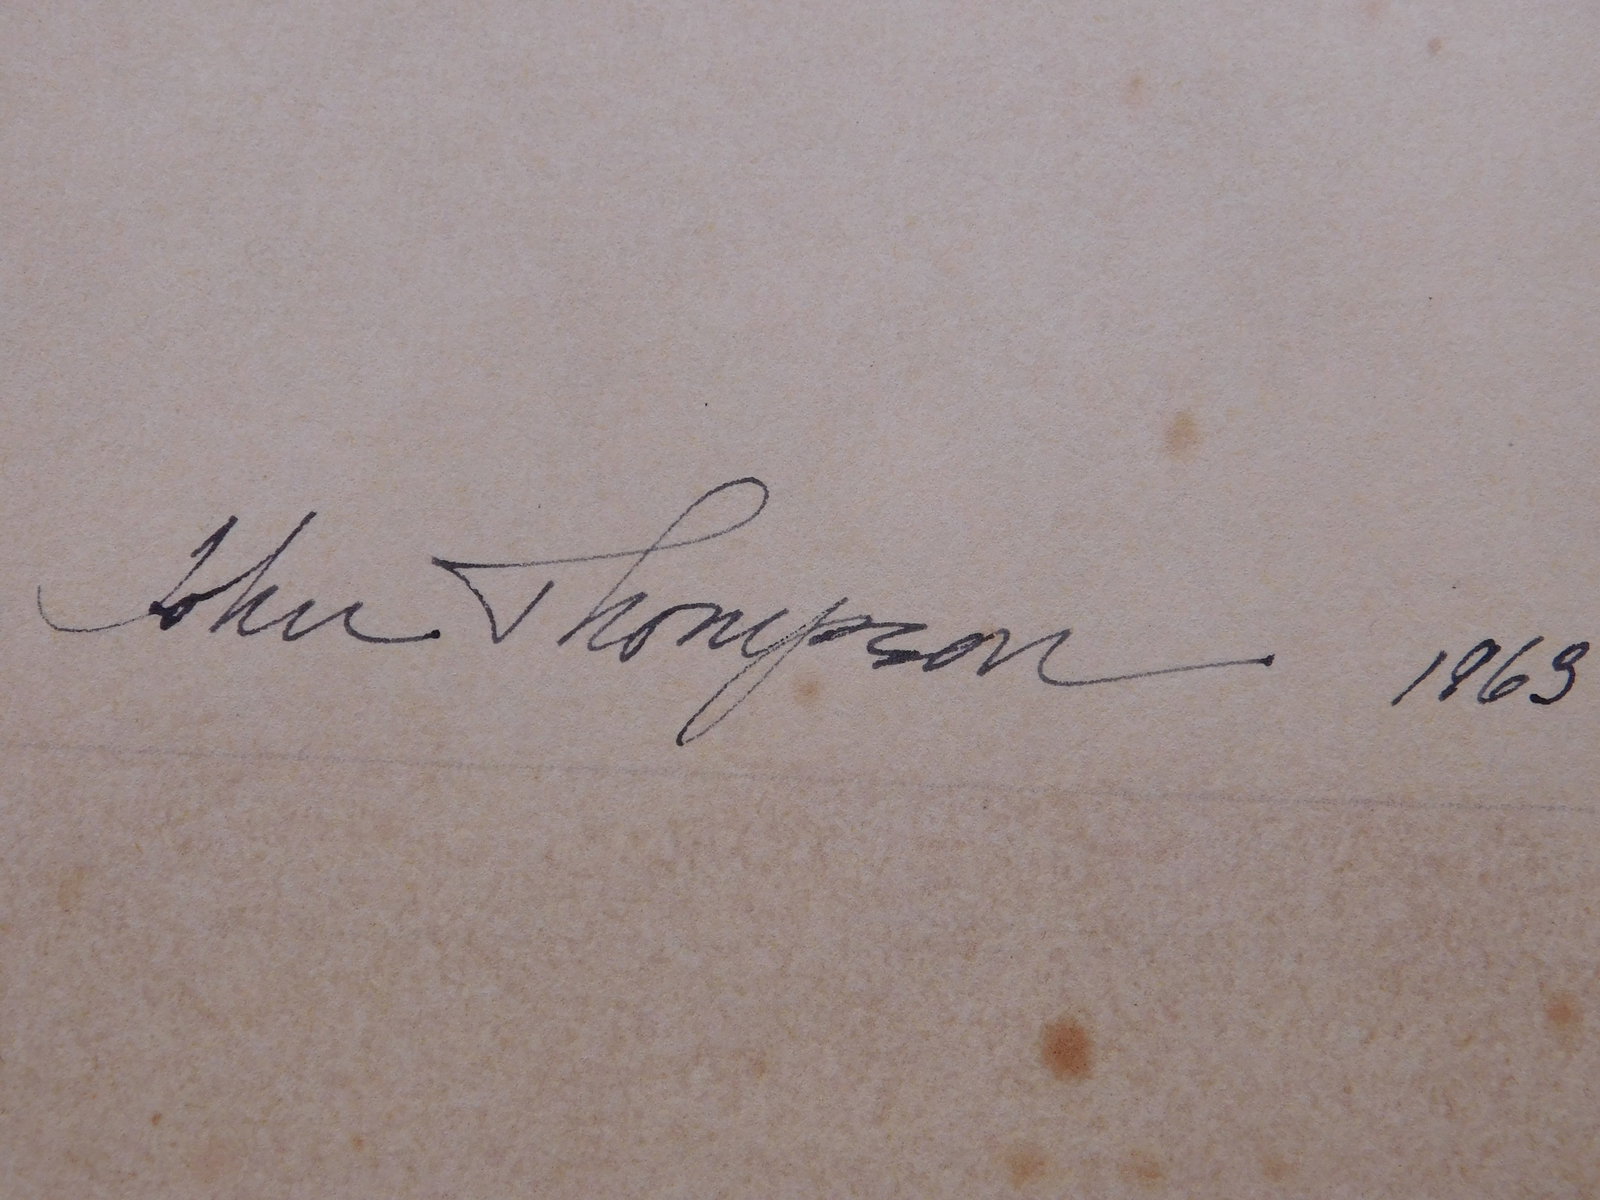 John Thompson 1963